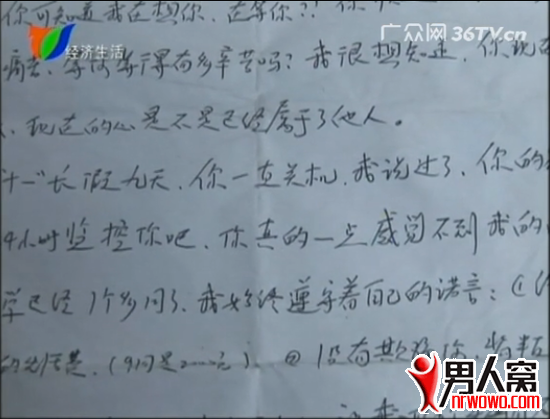 你可知道我在想你、在等你??你
经济生活
广众网36TV.cn
等得有多辛苦吗?我很想知道,你现在
、现在的心是不是已经属于了他人。
"十一"长假九天、你一直关机,我说过了,你的
4小时监控你吧、你真的一点感觉不到我的
已经1个多月了、我始终遵守着自己的诺言:①
②没有欺骗你、
男人窝
nrwowo.com